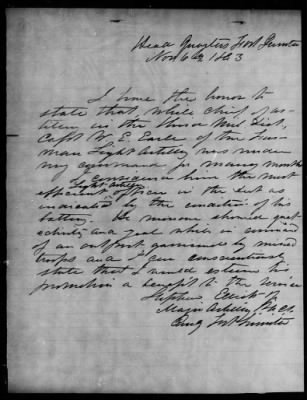 Head Quarters Fort Sumter
Nov 6th 1863
I have the honor to
state that while Chief of Ar-
tillery in the Third Mil Dist,
Capt W. E. Earle of the Fur-
man Light Artillery was under
my command for many months
I consider him the most
efficient Light Artillery officer in the Dist as
indicated by the condition of his
battery. He moreover showed great
activity and zeal while in command
of an outpost garrisoned by mixed
troops and I can conscientiously
state that I would esteem his
promotion a benefit to the service
Stephen Elliott Jr
Major Artillery
Comg Fort Sumter